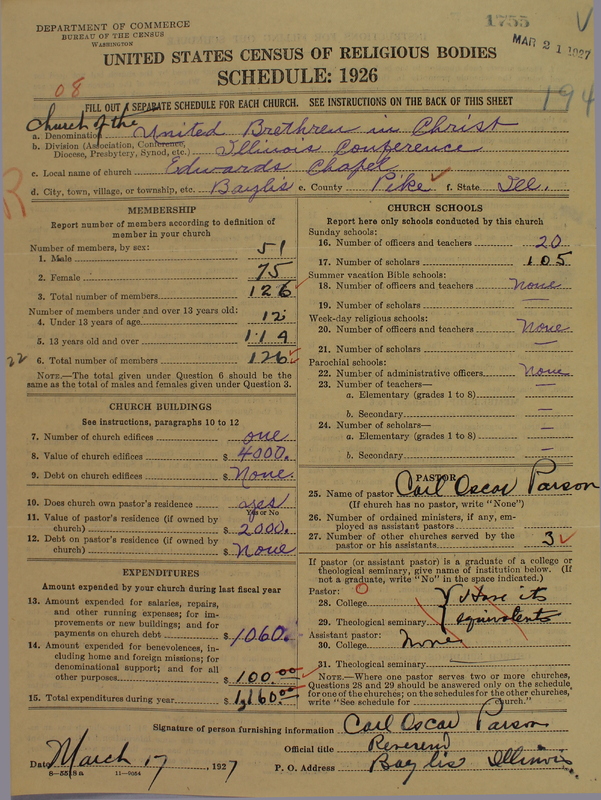 DEPARTMENT OF COMMERCE
BUREAU OF THE CENSUS
WASHINGTON
1755
MAR 21 1927
UNITED STATES CENSUS OF RELIGIOUS BODIES
SCHEDULE: 1926
08
194
FILL OUT A SEPARATE SCHEDULE FOR EACH CHURCH. SEE INSTRUCTIONS ON THE BACK OF THIS SHEET
Church of the
a. Denomination United Brethren in Christ
b. Division (Association, Conference, Diocese, Presbytery, Synod, etc.) Illinois Conference
c. Local name of church Edwards Chapel
d. City, town, village, or township, etc. Baylis e. County Pike f. State Ill.
R
MEMBERSHIP
Report number of members according to definition of
member in your church
Number of members, by sex:
1. Male 51
2. Female 75
3. Total number of members 126
Number of members under and over 13 years old:
4. Under 13 years of age 12
5. 13 years old and over 114
22
6. Total number of members 126
NOTE.—The total given under Question 6 should be the
same as the total of males and females given under Question 3.
CHURCH BUILDINGS
See instructions, paragraphs 10 to 12
7. Number of church edifices one
8. Value of church edifices $ 4000.
9. Debt on church edifices $ None.
10. Does church own pastor's residence yes
Yes or No
11. Value of pastor's residence (if owned by
church) $ 2000.
12. Debt on pastor's residence (if owned by
church) $ None
EXPENDITURES
Amount expended by your church during last fiscal year
13. Amount expended for salaries, repairs,
and other running expenses; for im-
provements or new buildings; and for
payments on church debt $ 1060.
14. Amount expended for benevolences, in-
cluding home and foreign missions; for
denominational support; and for all
other purposes $ 100.00
15. Total expenditures during year $ 1,160.00
CHURCH SCHOOLS
Report here only schools conducted by this church
Sunday schools:
16. Number of officers and teachers 20
17. Number of scholars 105
Summer vacation Bible schools:
18. Number of officers and teachers None
19. Number of scholars —
Week-day religious schools:
20. Number of officers and teachers None
21. Number of scholars —
Parochial schools:
22. Number of administrative officers None
23. Number of teachers—
a. Elementary (grades 1 to 8) —
b. Secondary —
24. Number of scholars—
a. Elementary (grades 1 to 8) —
b. Secondary —
PASTOR
25. Name of pastor Carl Oscar Parson
(If church has no pastor, write "None")
26. Number of ordained ministers, if any, em-
ployed as assistant pastors
27. Number of other churches served by the
pastor or his assistants 3
If pastor (or assistant pastor) is a graduate of a college or
theological seminary, give name of institution below. (If
not a graduate, write "No" in the space indicated.)
Pastor: O
28. College Have its
29. Theological seminary equivalents
Assistant pastor:
30. College None
31. Theological seminary
NOTE.—Where one pastor serves two or more churches,
Questions 28 and 29 should be answered only on the schedule
for one of the churches; on the schedules for the other churches,
write "See schedule for church."
Signature of person furnishing information Carl Oscar Parson
Official title Reverend
Date March 17, 1927
P. O. Address Baylis Illinois
8—5518a 11—9054